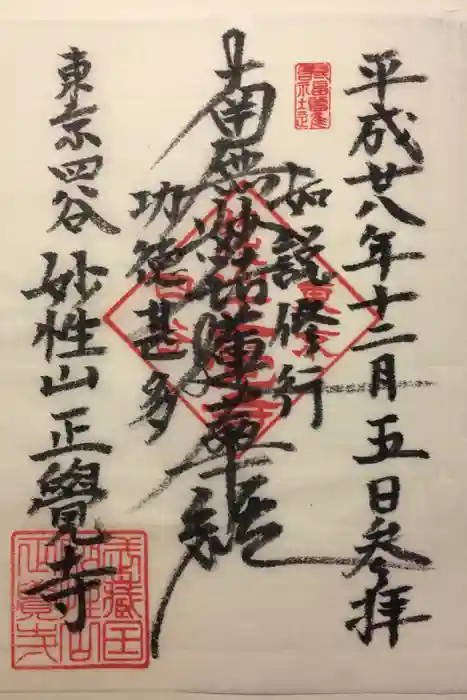 平成廿八年十二月五日参拝
如説修行
南無妙法蓮華経
功徳甚多
東京四谷
妙性山正覺寺